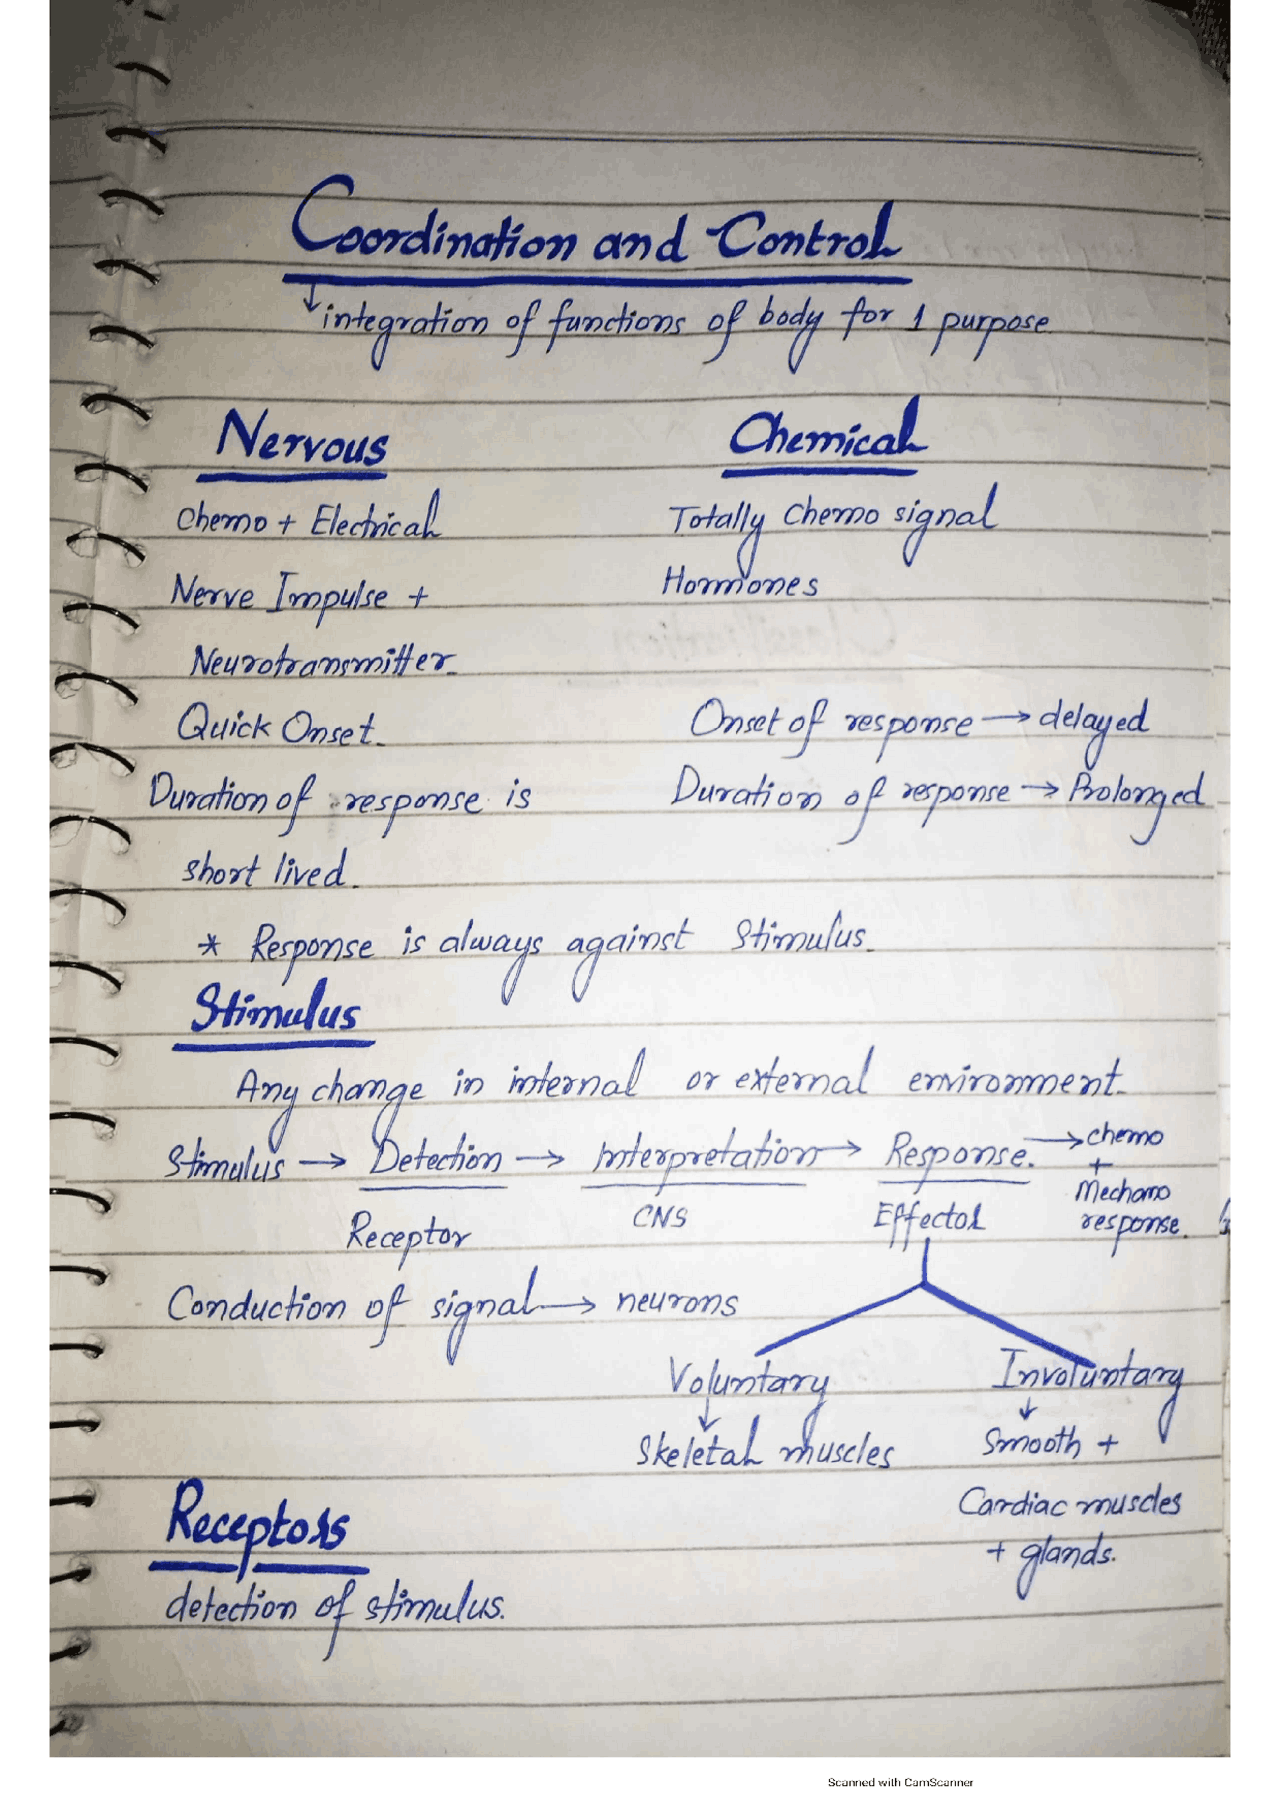 Coordination and Control
↓ integration of functions of body for 1 purpose
Nervous Chemical
Chemo + Electrical Totally Chemo signal
Nerve Impulse + Hormones
Neurotransmitter.
Quick Onset. Onset of response → delayed
Duration of response is Duration of response → Prolonged
short lived.
* Response is always against Stimulus.
Stimulus
Any change in internal or external environment.
Stimulus → Detection → Interpretation → Response. → chemo
+
Mechano
Receptor CNS Effector response.
Conduction of signal → neurons
Voluntary Involuntary
↓ ↓
Skeletal muscles Smooth +
Cardiac muscles
+ glands.
Receptors
detection of stimulus.
Scanned with CamScanner